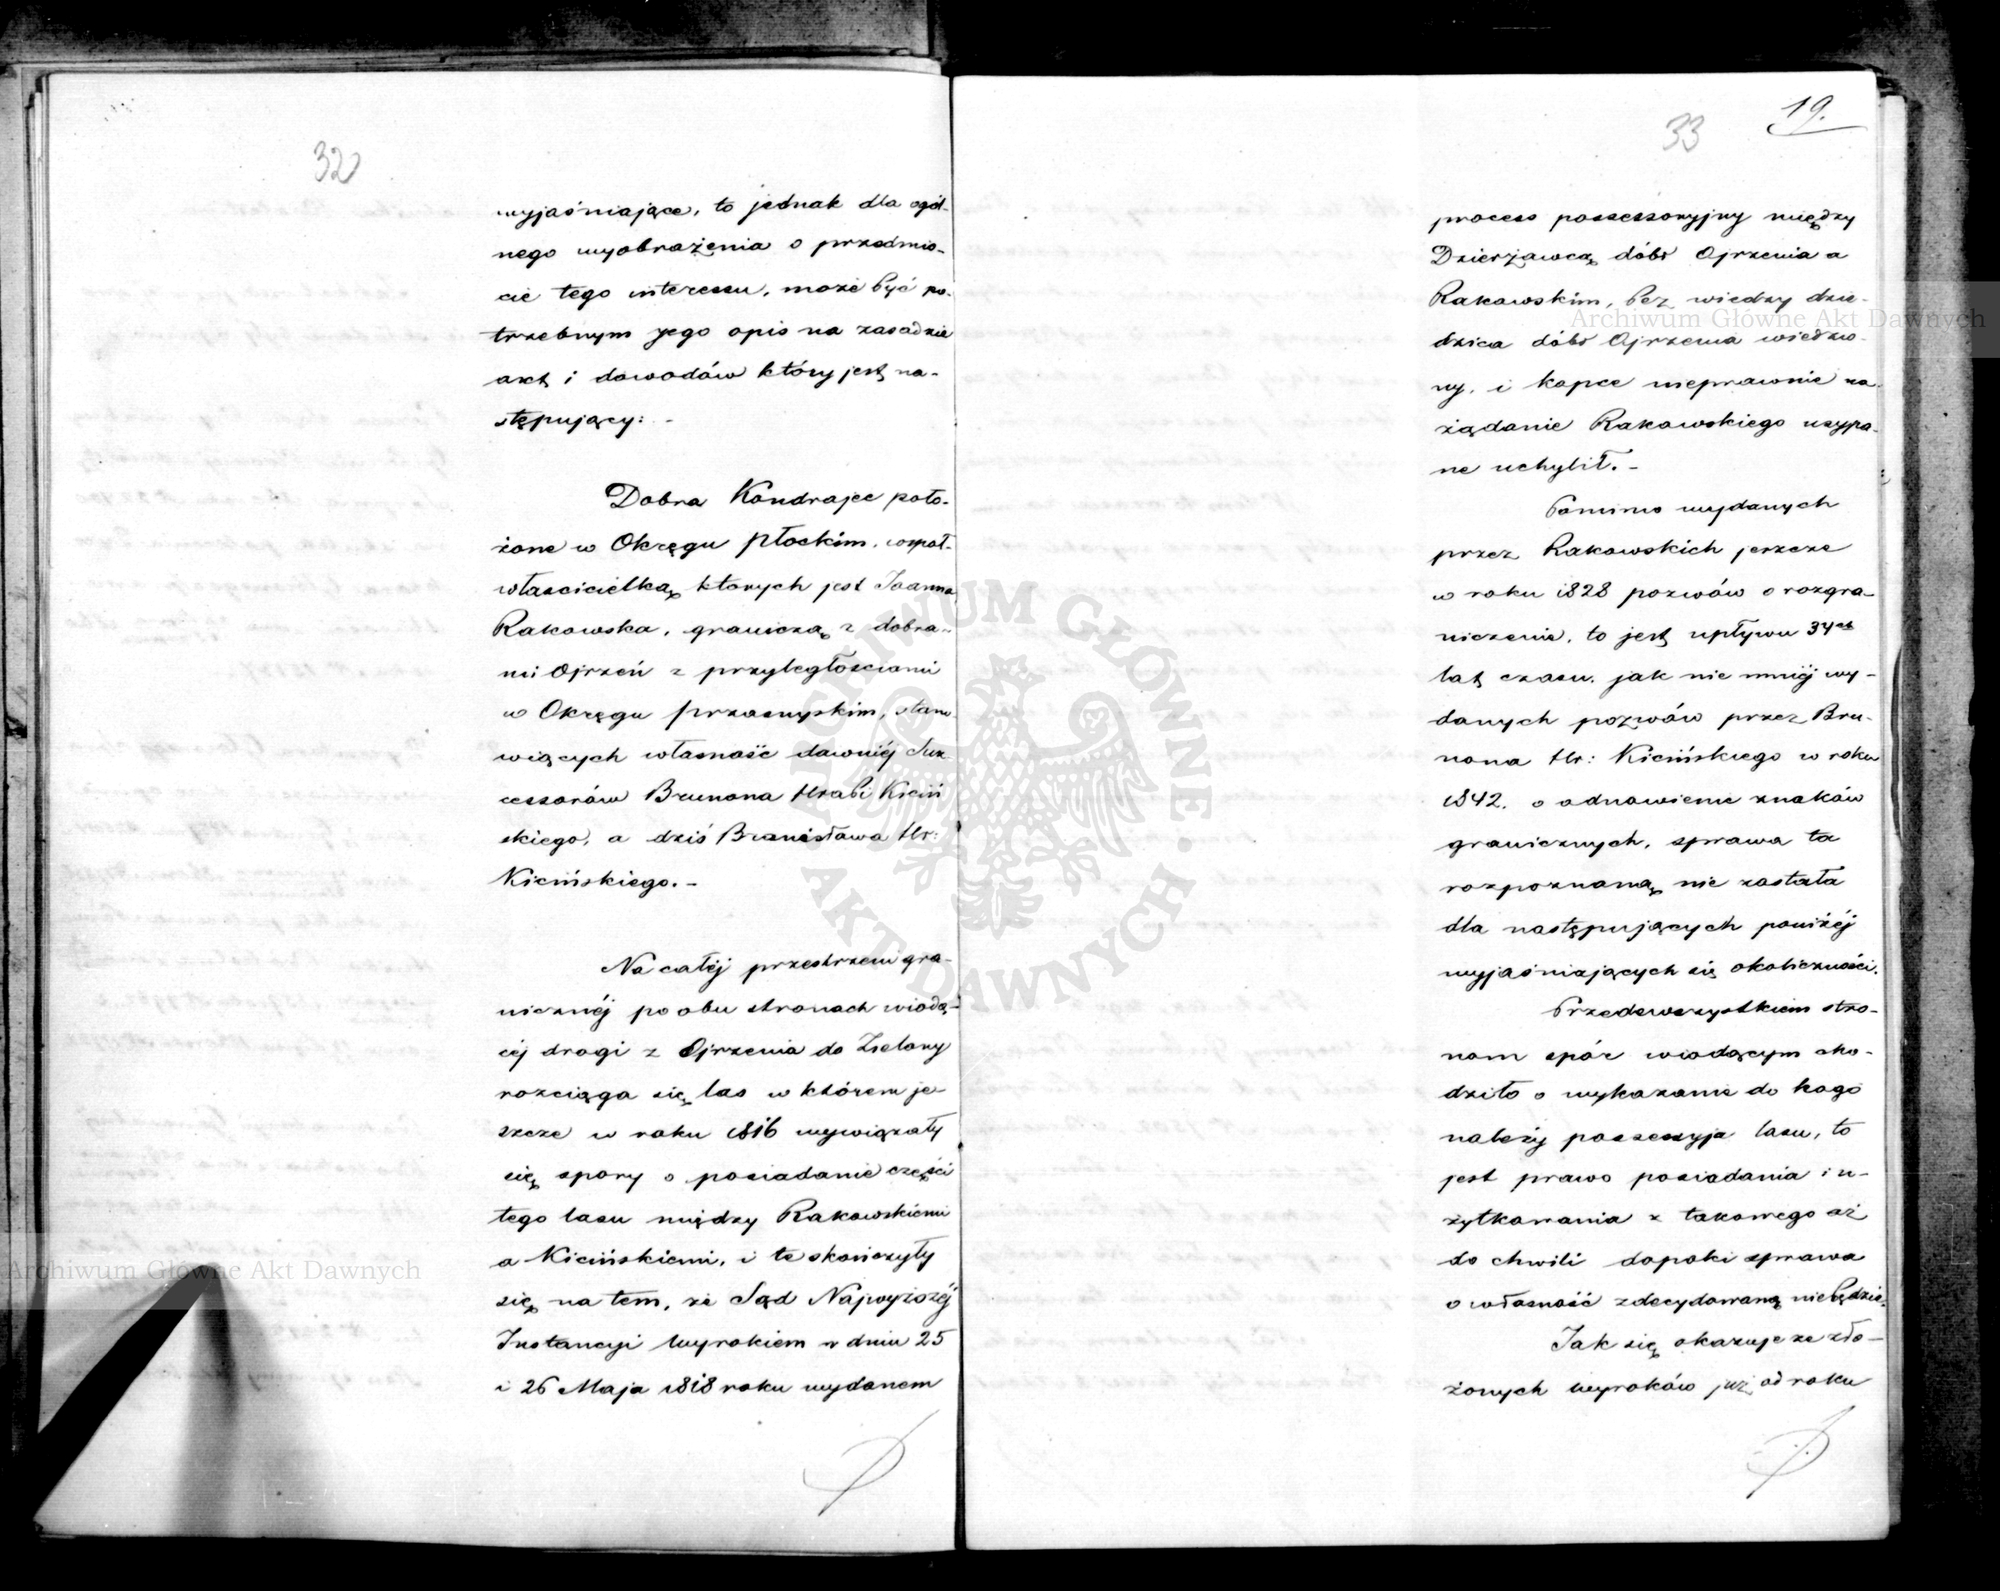 32
wyjaśniające, to jednak dla ogól-
nego wyobrażenia o przedmio-
cie tego interessu, może być po-
trzebnym jego opis na zasadzie
akt i dowodów który jest na-
stępujący: -
Dobra Kondrajec poło-
żone w Okręgu Płockim, współ-
właścicielką których jest Joanna
Rakowska, graniczą z dobra-
mi Ojrzeń z przyległościami
w Okręgu Przasnyskim, stano-
wiących własność dawniéj Suk-
cessorów Brunona Hrabi Kiciń
skiego, a dziś Bronisława Hr:
Kicińskiego. -
Na całéj przestrzeni gra-
nicznéj po obu stronach wiodą-
céj drogi z Ojrzenia do Zielony
rozciąga się las w którem je
szcze w roku 1816 wywiązały
się spory o posiadanie części
tego lasu między Rakowskiemi
a Kicińskiemi, i te skończyły
się na tem, że Sąd Najwyższéj
Instancyi Wyrokiem w dniu 25
i 26 Maja 1818 roku wydanem
19.
33
process possessoryjny między
Dzierżawcą dóbr Ojrzenia a
Rakowskim, bez wiedzy dzie-
dzica dóbr Ojrzenia wiedzio-
ny, i kopce nieprawnie na
żądanie Rakowskiego usypa-
ne uchylił. -
Pomimo wydanych
przez Rakowskich jeszcze
w roku 1828 pozwów o rozgra-
niczenie, to jest upływu 34ch
lat czasu, jak nie mniéj wy-
danych pozwów przez Bru-
nona Hr: Kicińskiego w roku
1842. o odnowienie znaków
granicznych, sprawa ta
rozpoznaną nie została
dla następujących poniżéj
wyjaśniających się okoliczności.
Przedewszystkiem stro-
nom spór wiodącym cho-
dziło o wykazanie do kogo
należy possessyja lasu, to
jest prawo posiadania i u-
żytkowania z takowego aż
do chwili dopóki sprawa
o własność zdecydowaną niebędzie.
Jak się okazuje ze zło-
żonych Wyroków już od roku
Archiwum Główne Akt Dawnych
Archiwum Główne Akt Dawnych
ARCHIWUM GŁÓWNE AKT DAWNYCH